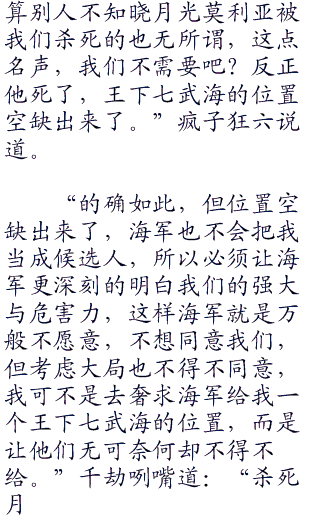 算别人不知晓月光莫利亚被
我们杀死的也无所谓，这点
名声，我们不需要吧？反正
他死了，王下七武海的位置
空缺出来了。”疯子狂六说
道。
“的确如此，但位置空
缺出来了，海军也不会把我
当成候选人，所以必须让海
军更深刻的明白我们的强大
与危害力，这样海军就是万
般不愿意，不想同意我们，
但考虑大局也不得不同意，
我可不是去奢求海军给我一
个王下七武海的位置，而是
让他们无可奈何却不得不
给。”千劫咧嘴道：“杀死
月